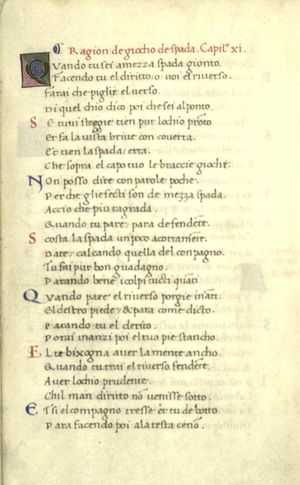 C Ragion de giocho de spada. Capitolo xi.
Quando tu sei a mezza spada gionto,
Facendo tu el diritto, o voi el riverso,
Farai che piglie el verso.
Di quel ch io dico poi che sei al ponto.
Se tu vi stegge tien pur l ochio pronto
Et fa la vista brive con coverta.
Et tien la spada, erta.
Che sopra el capo tuo le braccie gioche.
Non posso dire con parole poche.
Perche gli efecti son de mezza spada.
Accio che piu t agrada.
Quando tu pare, para de fendente.
Scosta la spada un poco acortamente.
Date, calcando quella del conpagno.
Tu fai pur bon guadagno.
Parando bene i colpi tucti quanti
Quando pare el riverso porgie inanti
El destro piede, & para come dicto.
Parando tu el derito.
Porai inanzi poi el tuo pie stancho.
El te bixogna aver la mente ancho.
Quando tu trai el riverso fendente.
Aver l ochio prudente.
Chil man diritto no venisse sotto.
Et si el compagno tresse & tu de botto.
Para facendo poi a la testa ceno.